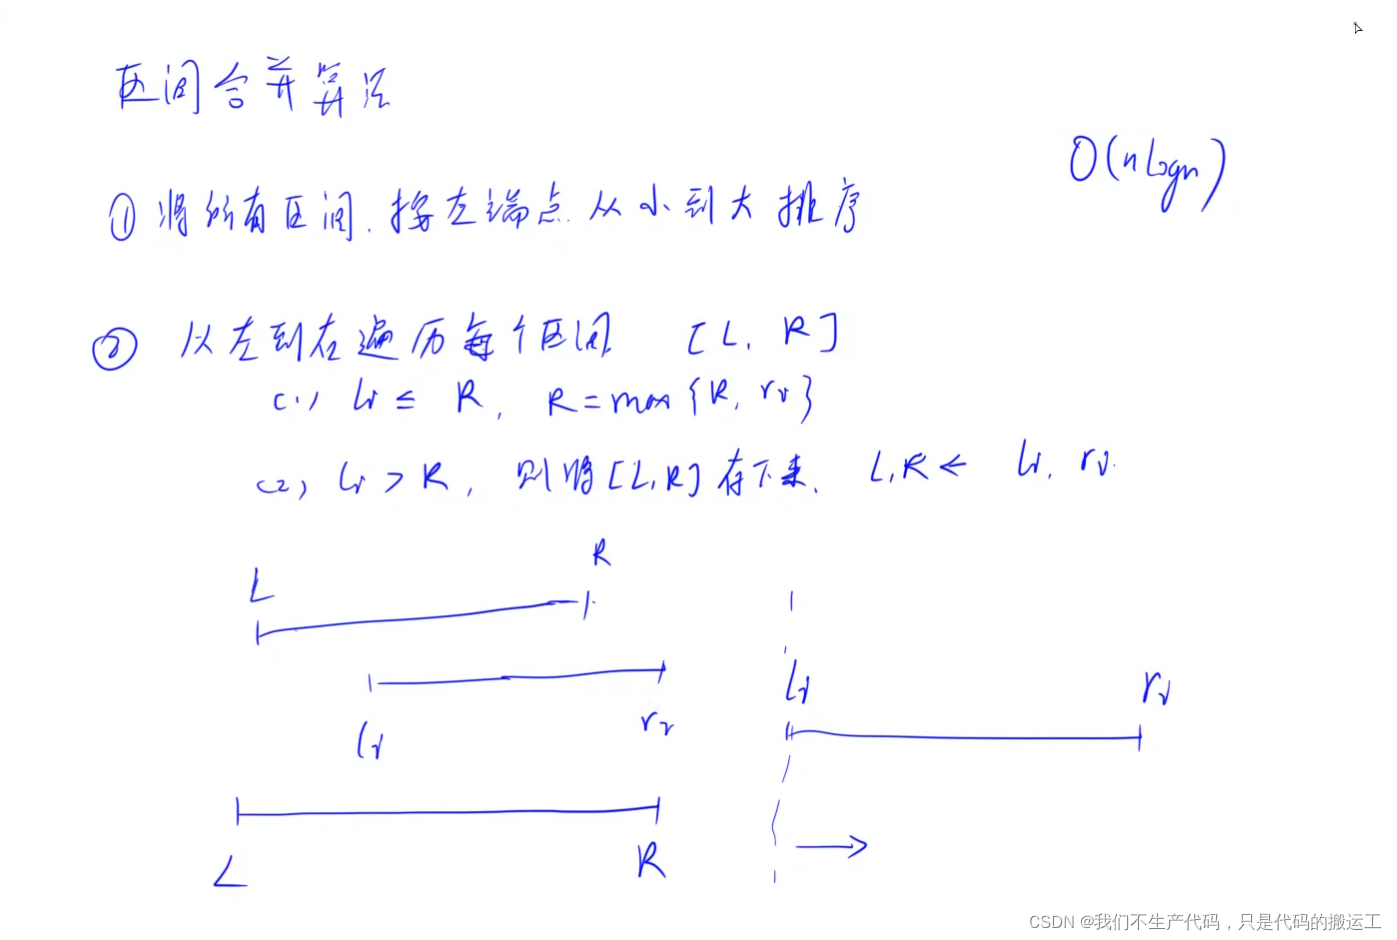 区间合并算法
O(nlogn)
① 将所有区间,按左端点从小到大排序
② 从左到右遍历每个区间 [L, R]
(1) li ≤ R, R = max{R, ri}
(2) li > R, 则将[L,R]存下来. L,R ← li, ri
R
L
li
ri
li
ri
L
R
CSDN @我们不生产代码，只是代码的搬运工